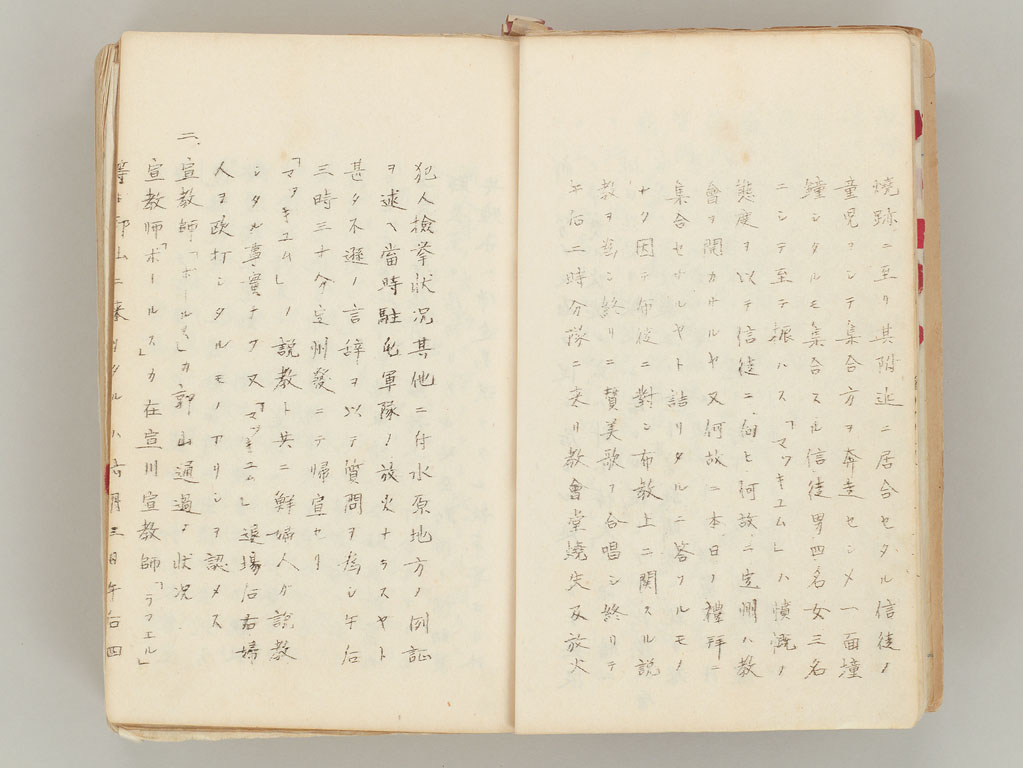 燒跡ニ至リ其附近ニ居合セタル信徒ノ
童児ヲシテ集合方ヲ奔走セシメ一面撞
鐘シタルモ集合スル信徒男四名女三名
ニシテ至テ振ハス「マツキユム」ハ憤慨ノ
態度ヲ以テ信徒ニ向ヒ何故ニ定州ハ教
會ヲ開カサルヤ又何故ニ本日ノ禮拜ニ
集合セサルヤト詰リタルニ答フルモノ
ナク因テ布徒ニ對シ布教上ニ関スル説
教ヲ為シ終リニ賛美歌ヲ合唱シ終リテ
午后二時分隊ニ来リ教會堂燒失及放火
犯人檢挙状況其他ニ付水原地方ノ例証
ヲ述ヘ當時駐屯軍隊ノ放火ナラスヤト
甚タ不遜ノ言辞ヲ以テ質問ヲ為シ午后
三時三十分定州發ニテ帰宣セリ
「マツキユム」ノ説教ト共ニ鮮婦人カ説教
シタル事實ナク又「マツキユム」退場后右婦
人ヲ殴打シタルモノナリシヲ認メス
二、宣教師「ボールス」カ郭山通過ノ状况
宣教師「ボールス」カ在宣川宣教師「ラフエル」
等ト郭山ニ来リタルハ六月三日午后四